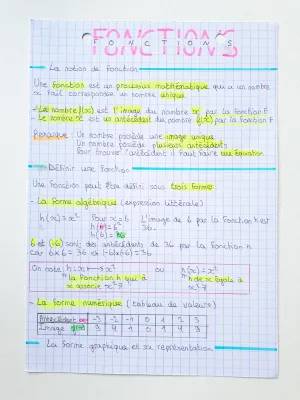 FONCTIONS
FONCTIONS
La notion de fonction
Une fonction est un processus mathématique qui à un nombre
x fait correspondre un nombre unique
- Le nombre f(x) est l'image du nombre x par la fonction f
- Le nombre x est un antécédent du nombre f(x) par la fonction f
Remarque : Un nombre possède une image unique
Un nombre possède plusieurs antécédents
Pour trouver l'antécédent il faut faire une équation
Définir une fonction
Une fonction peut être défini sous trois formes:
- La forme algébrique (expression littérale)
h(x) = x² Pour x = 6 L'image de 6 par la fonction h est
h(6) = 6² 36.
h(6) = 36
6 et (-6) sont des antécédents de 36 par la fonction h
car 6×6 = 36 et (-6)×(-6) = 36
On note h: x ⟼ x² ou h(x) = x²
"la fonction h qui à "h de x égale à
x associe x²" x²"
- La forme numérique (tableau de valeurs)
Antécédent x -3 -2 -1 0 1 2 3
Image 9 4 1 0 1 4 9
- La forme graphique et sa représentation